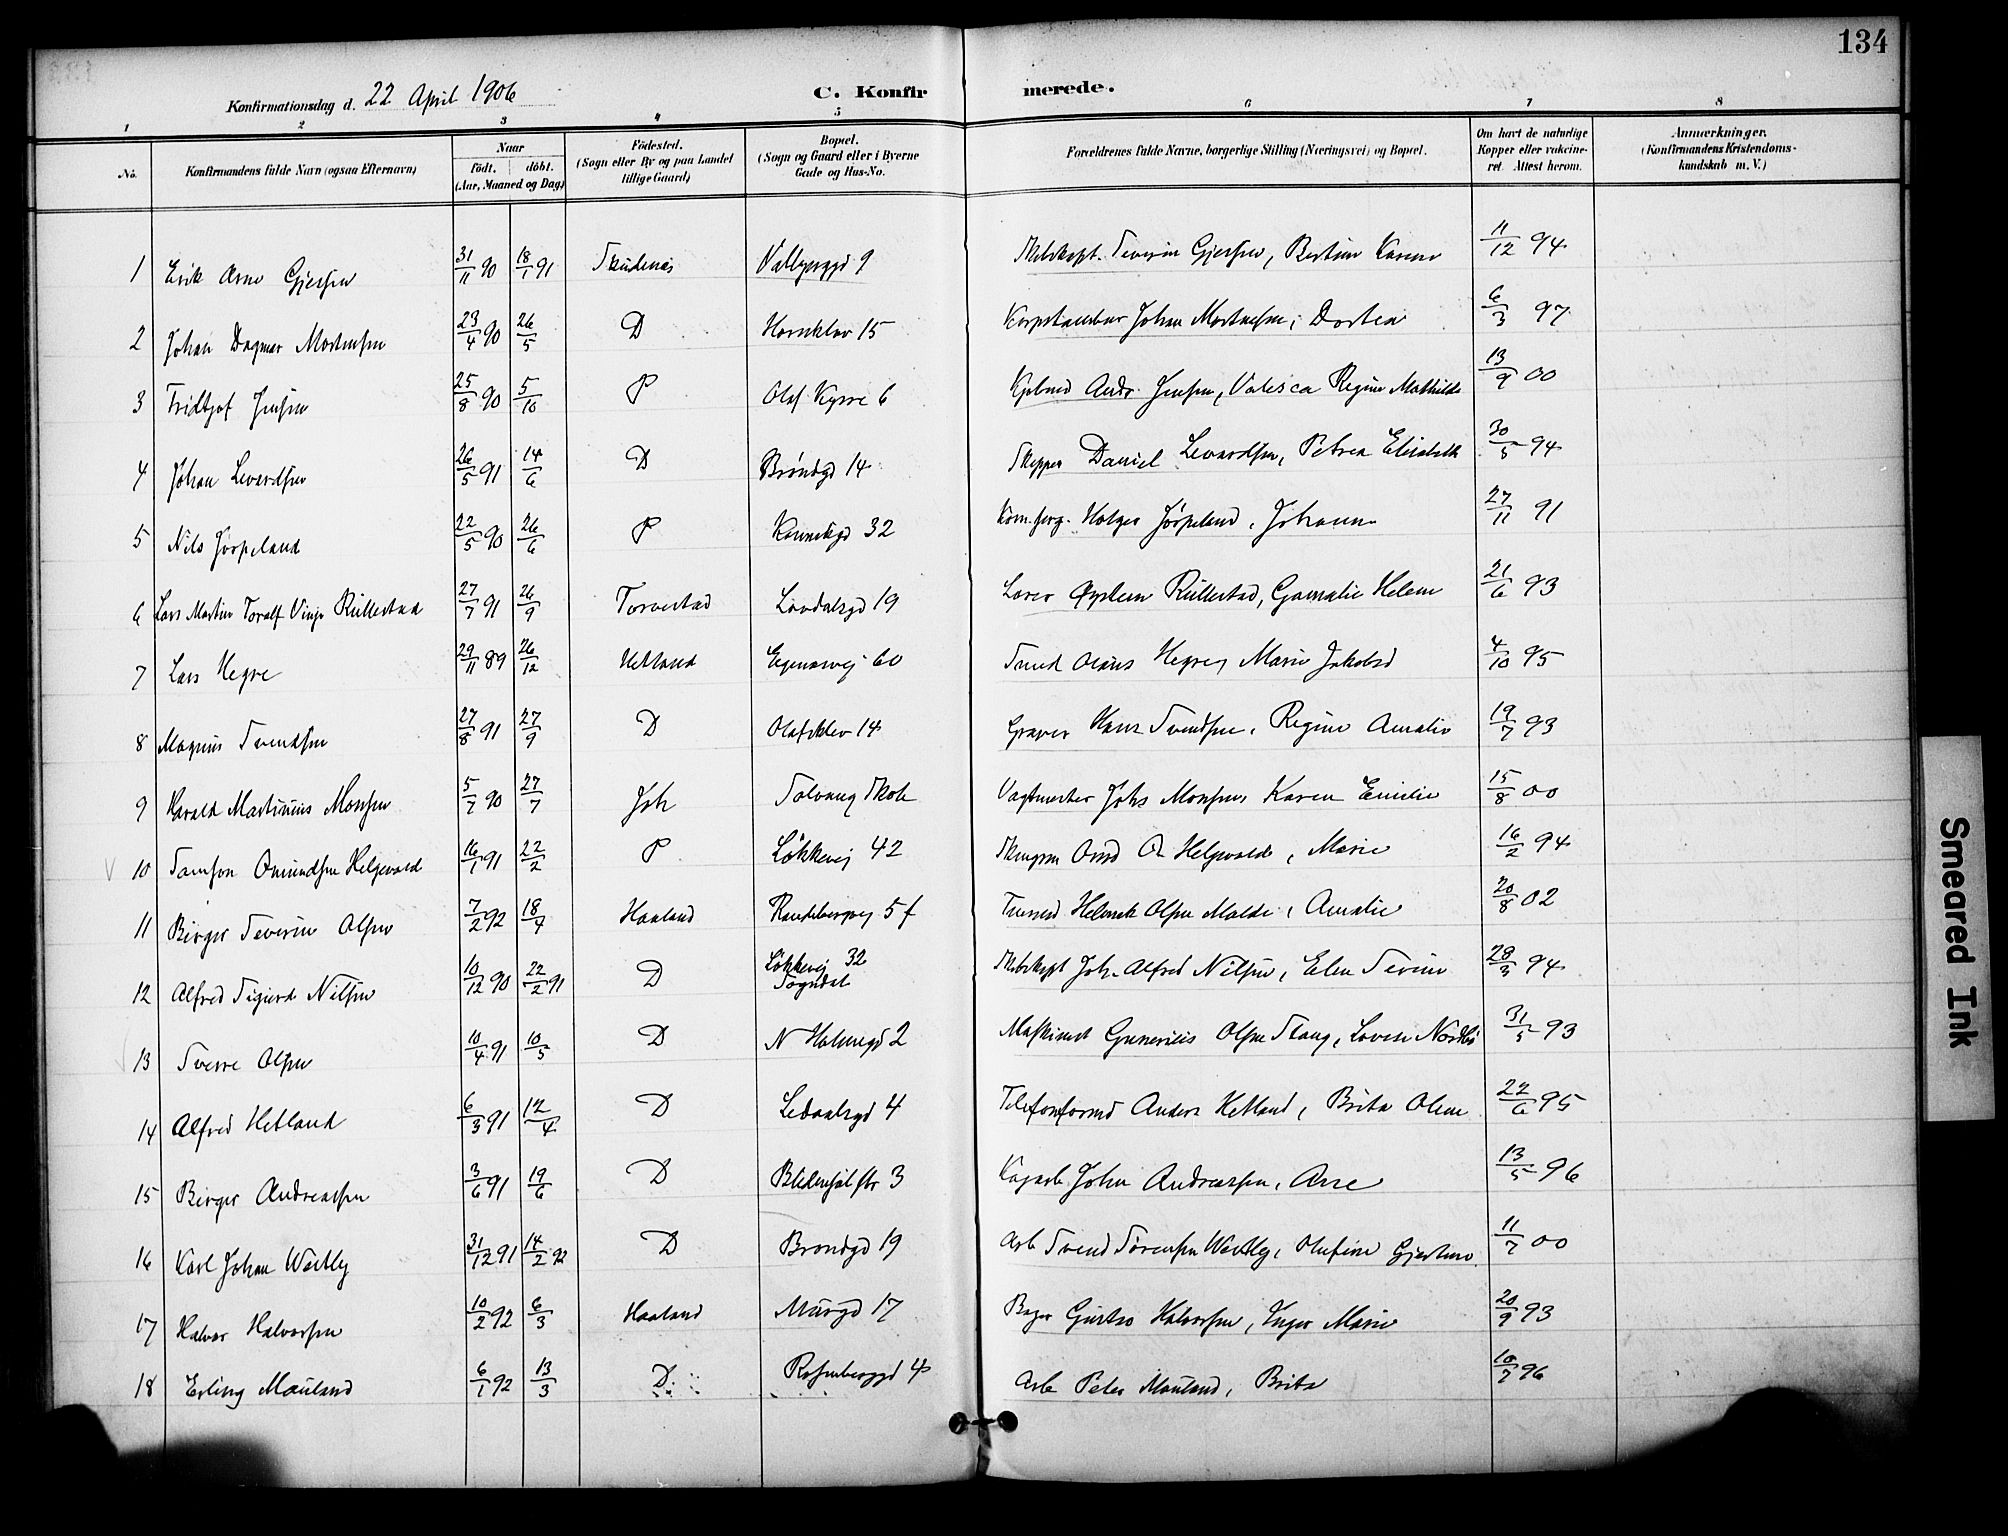 134
Konfirmationsdag d. 22 April 1906 C. Konfir merede.
1 2 3 4 5 6 7 8
No. Konfirmandens fulde Navn (ogsaa Efternavn) Naar født. døbt. (Aar, Maaned og Dag) Fødested. (Sogn eller By og paa Landet tillige Gaard) Bopæl. (Sogn og Gaard eller i Byerne Gade og Hus-No. Forældrenes fulde Navne, borgerlige Stilling (Næringsvei) og Bopæl. Om havt de naturlige Kopper eller vakcineret. Attest herom. Anmærkninger. (Konfirmandens Kristendomskundskab m. V.)
1 Erik Arne Gjersen 31/11 90 18/1 91 Skudenæs Valbergsgd 9 Skibskapt. Severin Gjersen, Bertine Karene 11/12 94
2 Johan Dagmar Mortensen 23/4 90 26/5 D Hornklov 15 Johan Mortensen, Dortea 6/3 97
3 Fridtjof Jensen 25/8 90 5/10 P Olaf Kyrre 6 Kjøbmd Andr. Jensen, Valesca Regine Mathilde 13/9 00
4 Johan Levardsen 26/5 91 14/6 D Brøndgd 14 Skipper Daniel Levardsen, Petrea Elisabeth 30/5 94
5 Nils Jørpeland 22/5 90 26/6 P Kannikgd 32 Holger Jørpeland, Johanne 27/11 91
6 Lars Martin Toralf Vinje Rullestad 27/7 91 26/9 Torvestad Løvdalsgd 19 Lærer Øystein Rullestad, Gamalie Helene 21/6 93
7 Lars Hegre 29/11 89 26/12 Hetland Egenæsvej 60 Smed Olaus Hegre, Marie Jakobsd 4/10 95
8 Magnus Svendsen 27/8 91 27/9 D Olafsklev 14 Graver Hans Svendsen, Regine Amalie 19/7 93
9 Harald Martinius Monsen 5/7 90 27/7 Joh Solvang Skole Vagtmester Johs Monsen, Karen Emilie 15/8 00
10 Samson Omundsen Helgevold 16/1 91 22/2 P Løkkevej 42 Omd O. Helgevold, Marie 16/2 94
11 Birger Severin Olsen 7/2 92 18/4 Haaland Randabergvej 5 f Helmik Olsen Molde, Amalie 20/8 02
12 Alfred Sigurd Nilsen 10/12 90 22/2 91 D Løkkevej 32 Sogndal Skibskapt Joh. Alfred Nilsen, Elen Serine 28/3 94
13 Sverre Olsen 10/4 91 10/5 D N Holmegd 2 Maskinist Gunerius Olsen Stang, Lovise 31/5 93
14 Alfred Hetland 6/3 91 12/4 D Ledaalsgd 4 Telefonformd Anders Hetland, Brita Oline 22/6 95
15 Birger Andreassen 3/6 91 19/6 D Blidensol str 3 John Andreassen, Ane 13/5 96
16 Karl Johan Westly 31/12 91 14/2 92 D Brøndgd 19 Arb Svend Sørensen Westly, Olufine Gjertine 11/7 00
17 Halvor Halvorsen 10/2 92 6/3 Haaland Murgd 17 Bager Gustav Halvorsen, Inger Marie 20/9 93
18 Erling Mauland 6/1 92 13/3 D Rosenberggd 4 Arb Peter Mauland, Brita 10/7 96
Smeared Ink